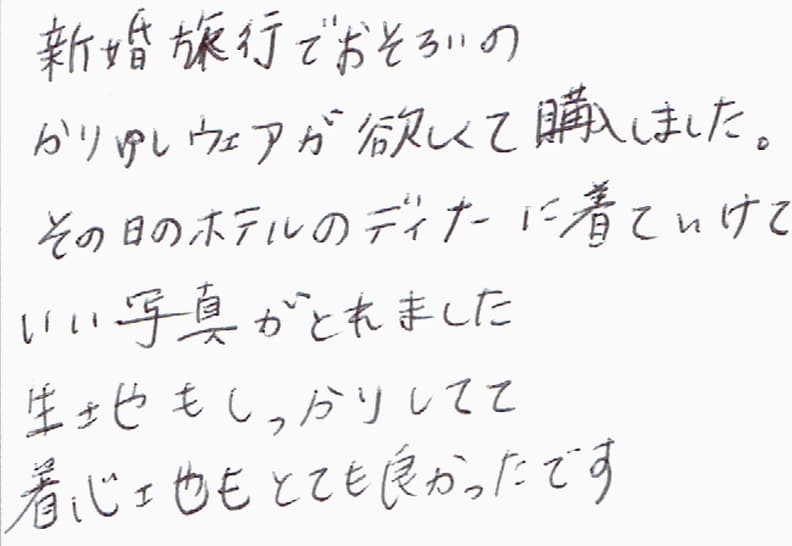 新婚旅行でおそろいの
かりゆしウェアが欲しくて購入しました。
その日のホテルのディナーに着ていけて
いい写真がとれました
生地もしっかりしてて
着心地もとても良かったです